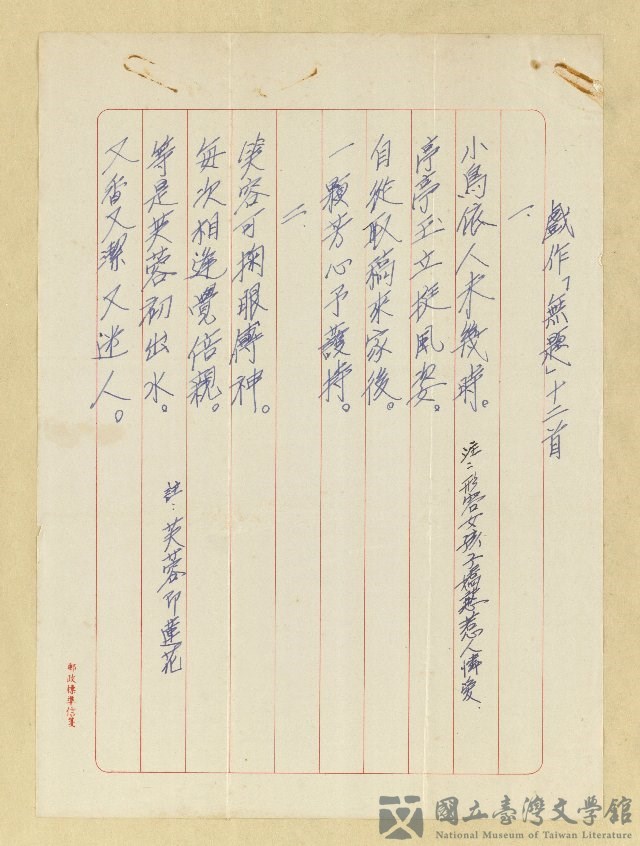 戲作「無題」十二首
一.
小鳥依人未幾時。
註：形容女孩子嬌憨惹人憐愛.
亭亭玉立挺風姿。
自從取稿來家後。
一顆芳心予護持。
二.
笑容可掬眼傳神。
每次相逢覺倍親。
等是芙蓉初出水。
註：芙蓉即蓮花
又香又潔又迷人。
郵政標準信箋
國立臺灣文學館
National Museum of Taiwan Literature